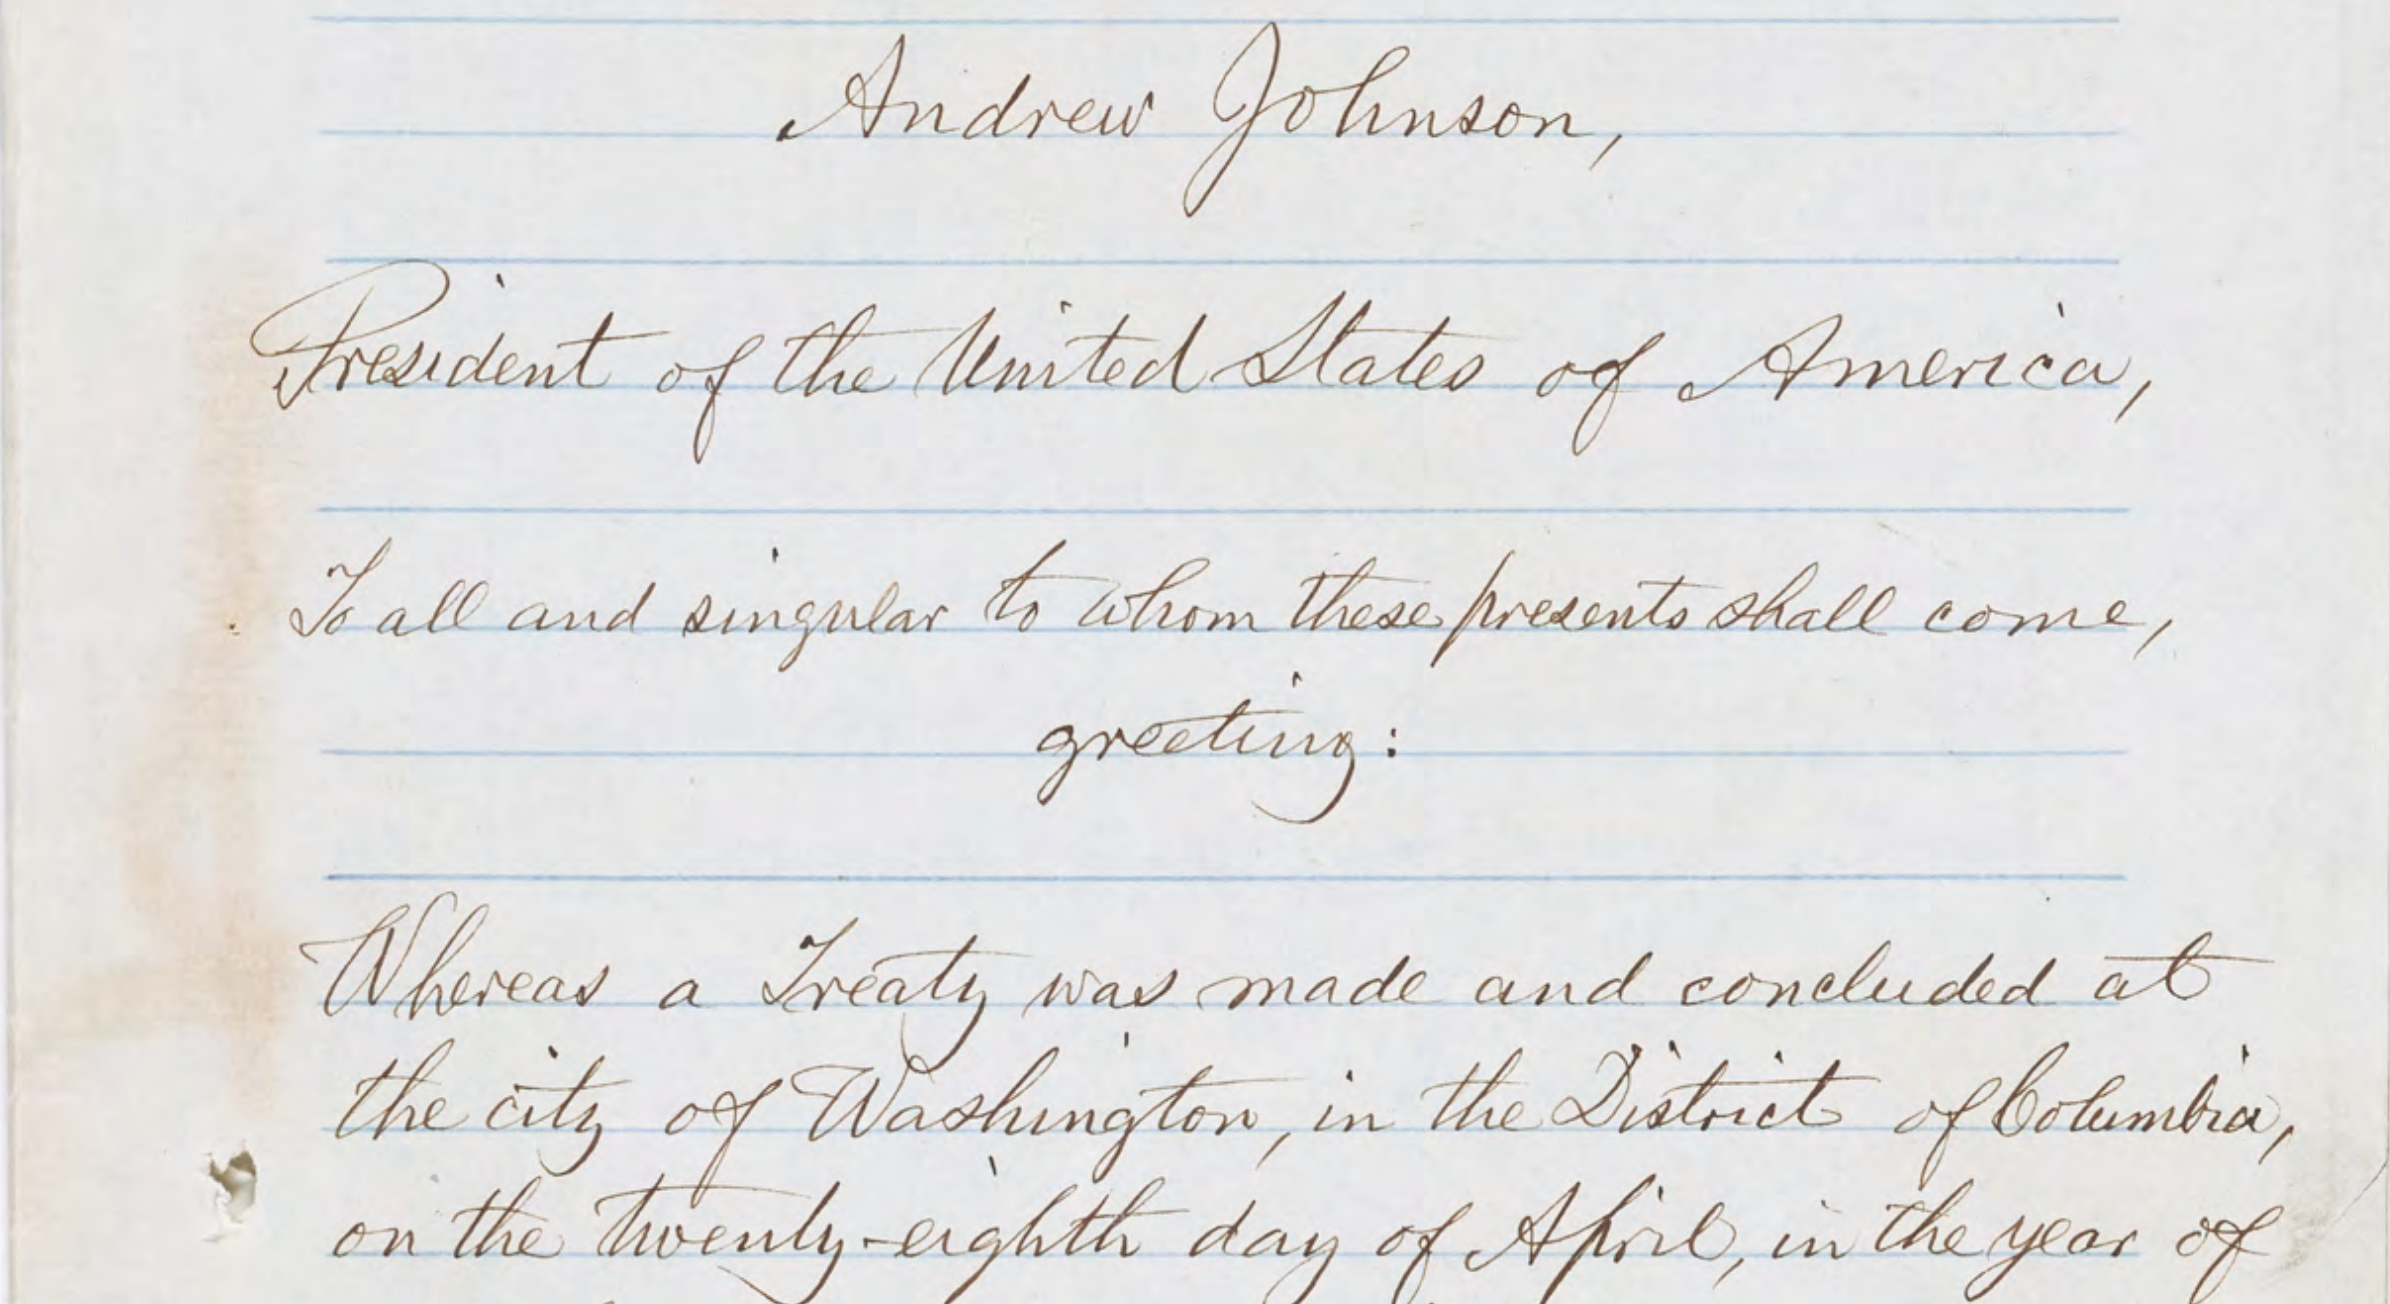 Andrew Johnson,
President of the United States of America,
To all and singular to whom these presents shall come,
greeting:
Whereas a Treaty was made and concluded at
the city of Washington, in the District of Columbia,
on the twenty-eighth day of April, in the year of